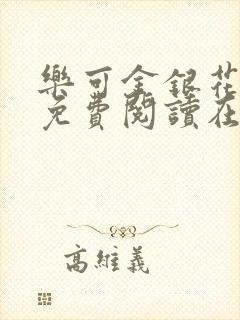 樂可金銀花
免費閱讀在
高維義